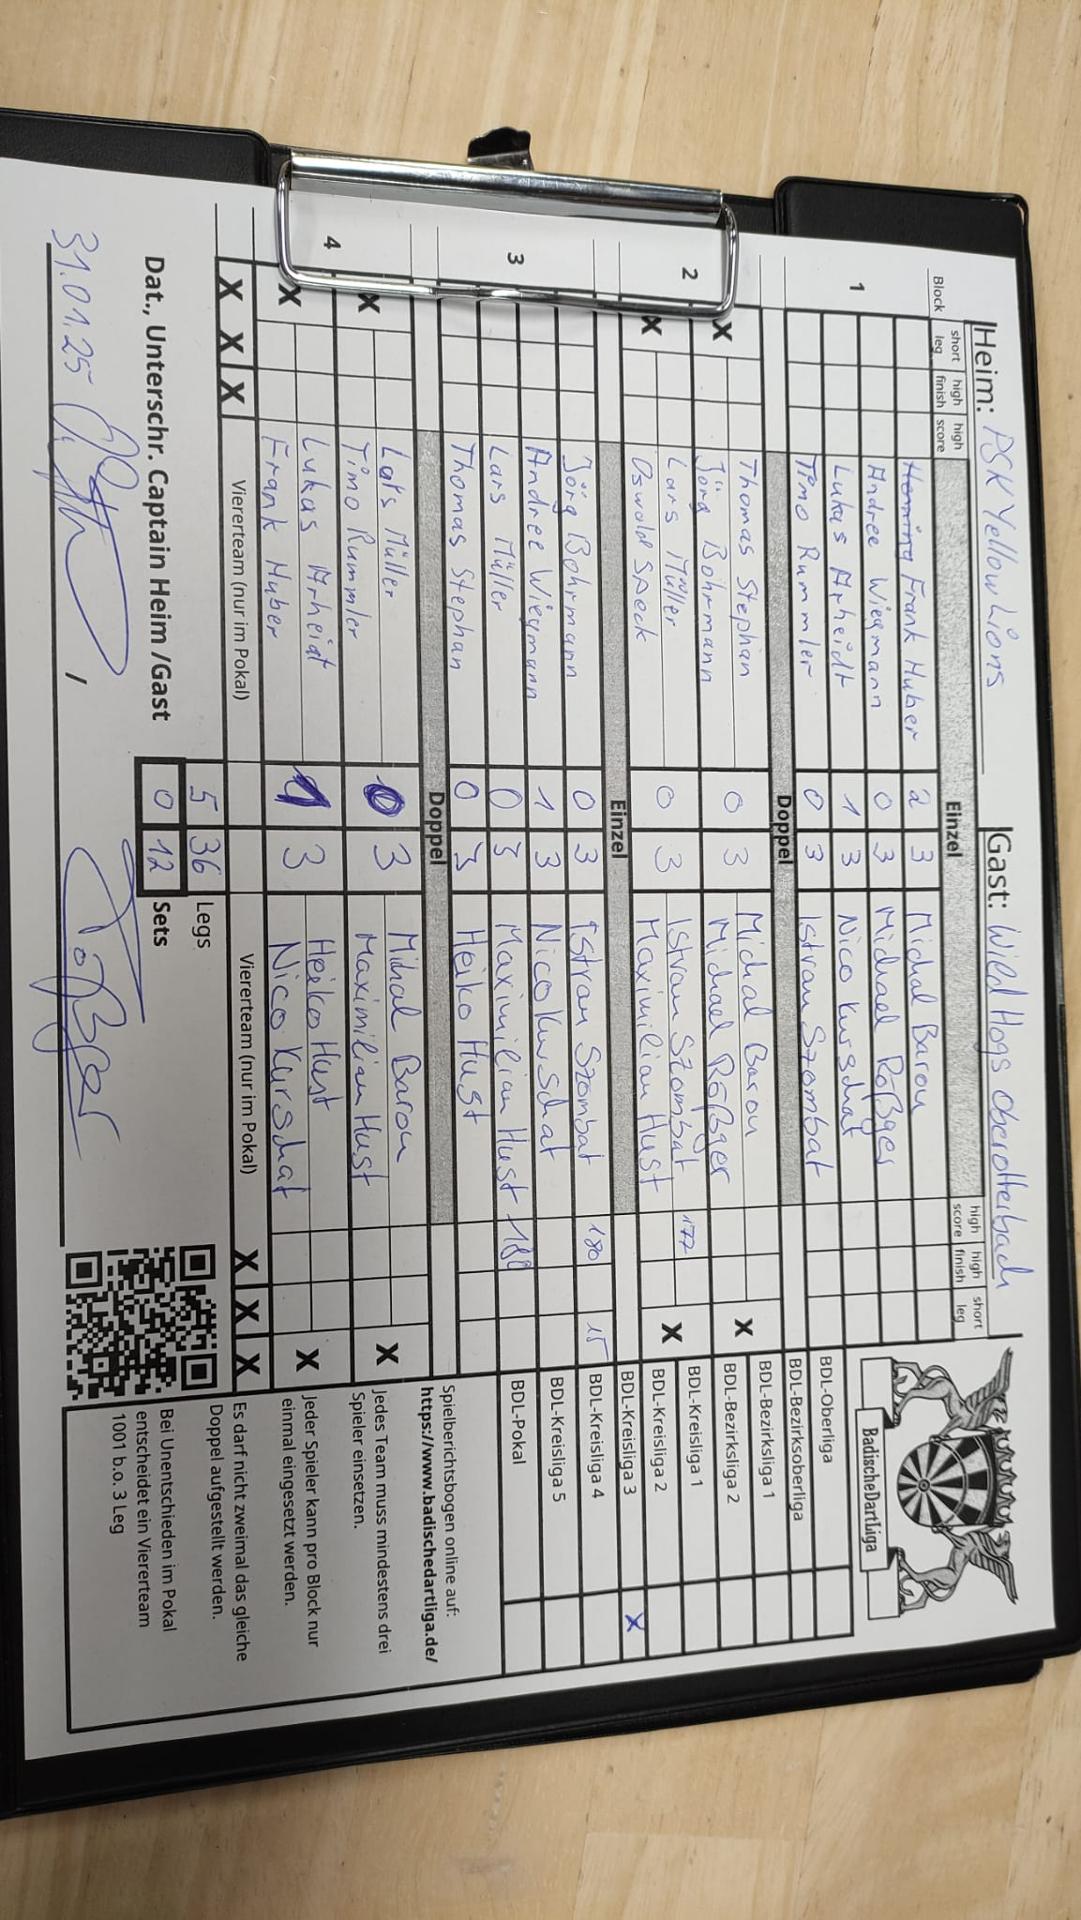 Heim: PSK Yellow Lions Gast: Wild Hogs Oberotterbach
Block short leg high finish high score Einzel high score high finish short leg
Henning Frank Huber 2 3 Michal Barou
Andree Wiegmann 0 3 Michael Roßger
1 Lukas Arheidt 1 3 Nico Kurschat
Timo Rummler 0 3 Istvan Szombat
Doppel
Thomas Stephan Michal Barou
X Jörg Bohrmann 0 3 Michael Roßger X
2 Lars Müller Istvan Szombat 177
X Oswald Speck 0 3 Maximilian Hust X
Einzel
Jörg Bohrmann 0 3 Istvan Szombat 180 15
Andree Wiegmann 1 3 Nico Kurschat
3 Lars Müller 0 3 Maximilian Hust 180
Thomas Stephan 0 3 Heiko Hust
Doppel
Lars Müller Michal Barou
X Timo Rummler 0 3 Maximilian Hust X
4 Lukas Arheidt Heiko Hust
X Frank Huber 1 3 Nico Kurschat X
X X X Viererteam (nur im Pokal) Viererteam (nur im Pokal) X X X
5 36 Legs
Dat., Unterschr. Captain Heim /Gast 0 12 Sets
31.01.25 ,
BadischeDartLiga
BDL-Oberliga
BDL-Bezirksoberliga
BDL-Bezirksliga 1
BDL-Bezirksliga 2
BDL-Kreisliga 1
BDL-Kreisliga 2
BDL-Kreisliga 3 X
BDL-Kreisliga 4
BDL-Kreisliga 5
BDL-Pokal
Spielberichtsbogen online auf:
https://www.badischedartliga.de/
Jedes Team muss mindestens drei
Spieler einsetzen.
Jeder Spieler kann pro Block nur
einmal eingesetzt werden.
Es darf nicht zweimal das gleiche
Doppel aufgestellt werden.
Bei Unentschieden im Pokal
entscheidet ein Viererteam
1001 b.o. 3 Leg